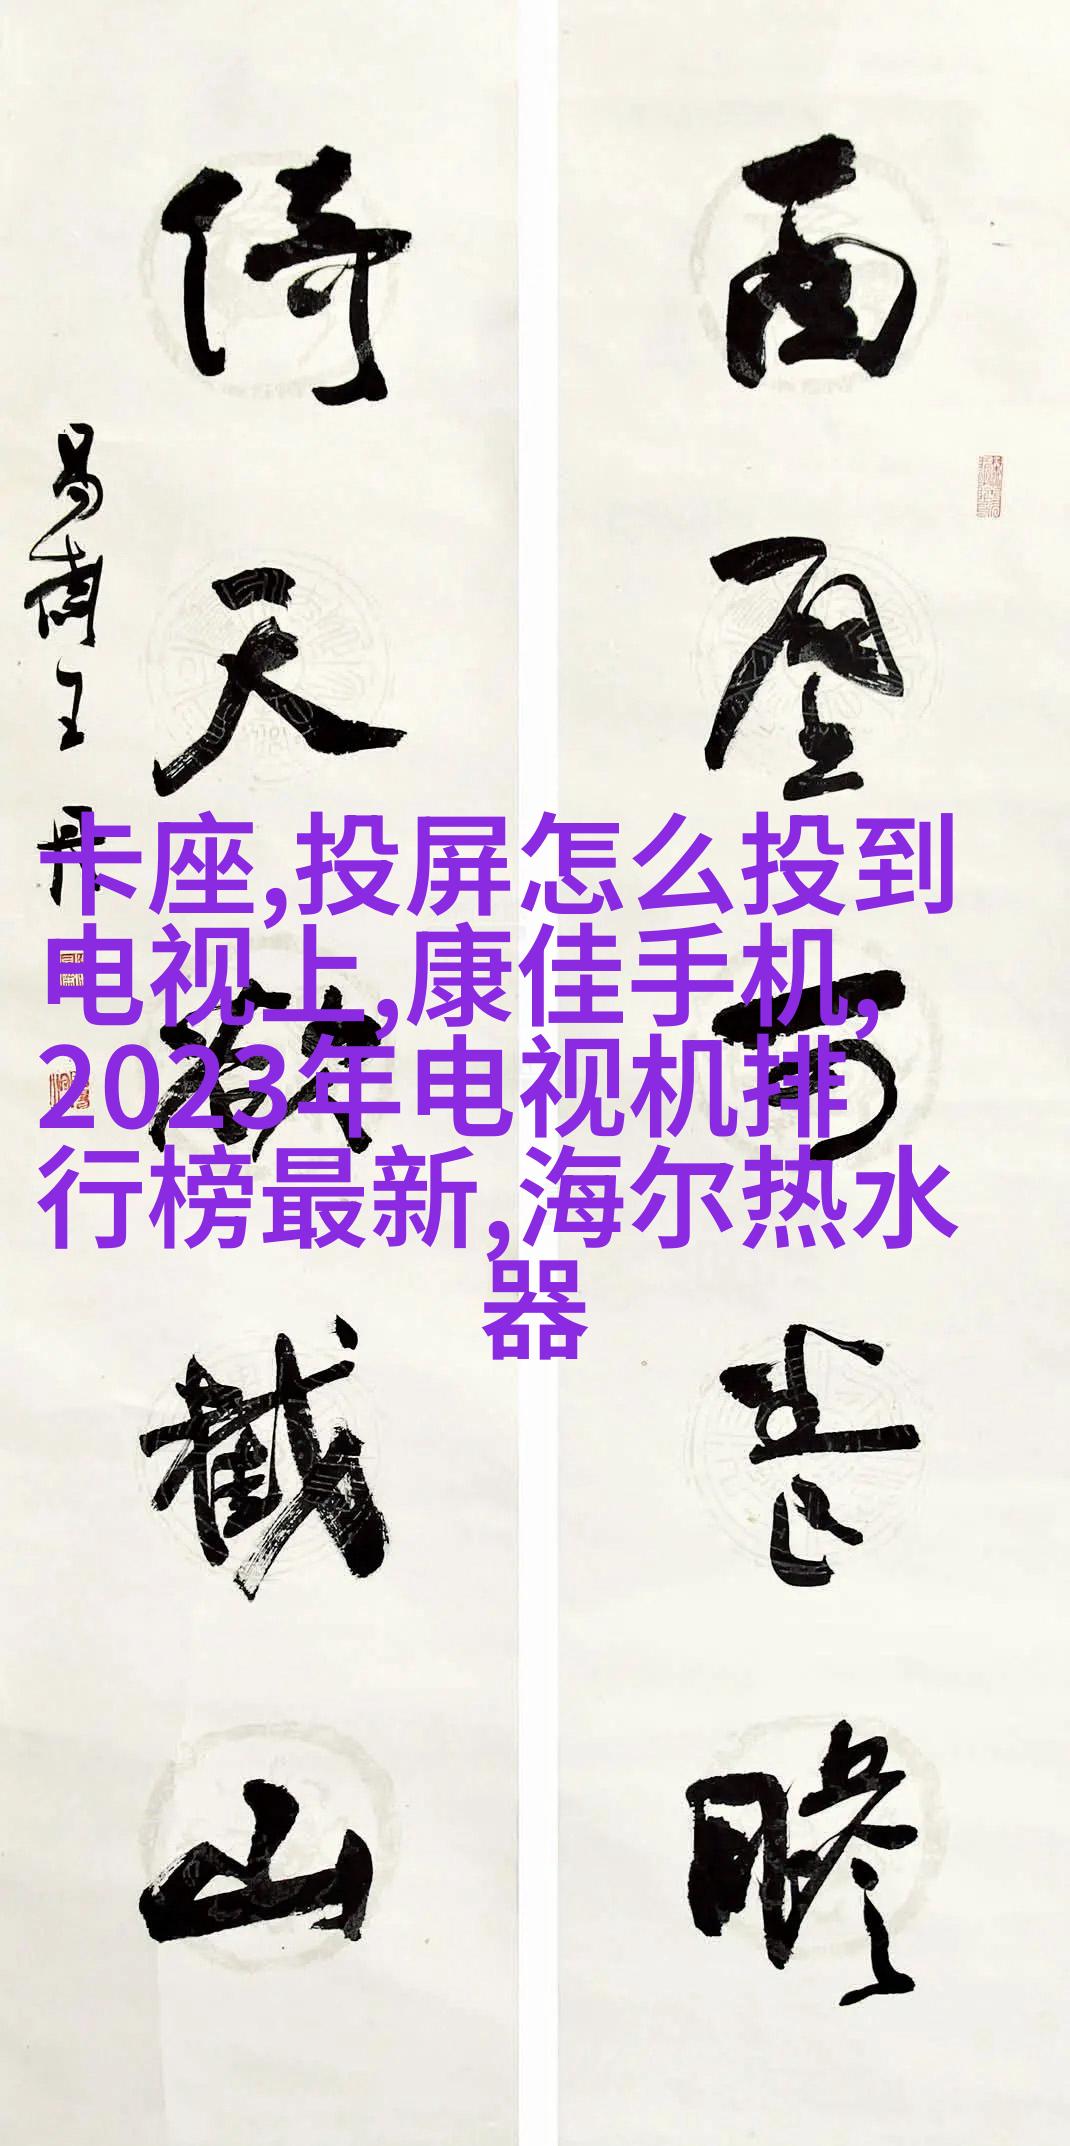 卡座,投屏怎么投到
电视上,康佳手机,
2023年电视机排
行榜最新,海尔热水
器
壁可瞻
倚天截山
王丹